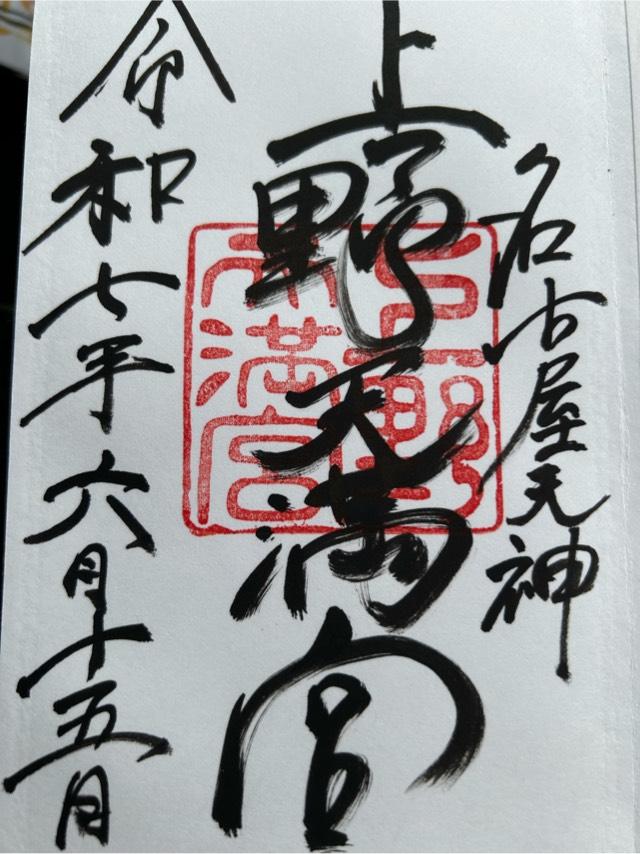 名古屋天神
上野天満宮
令和七年六月十五日
上野天満宮